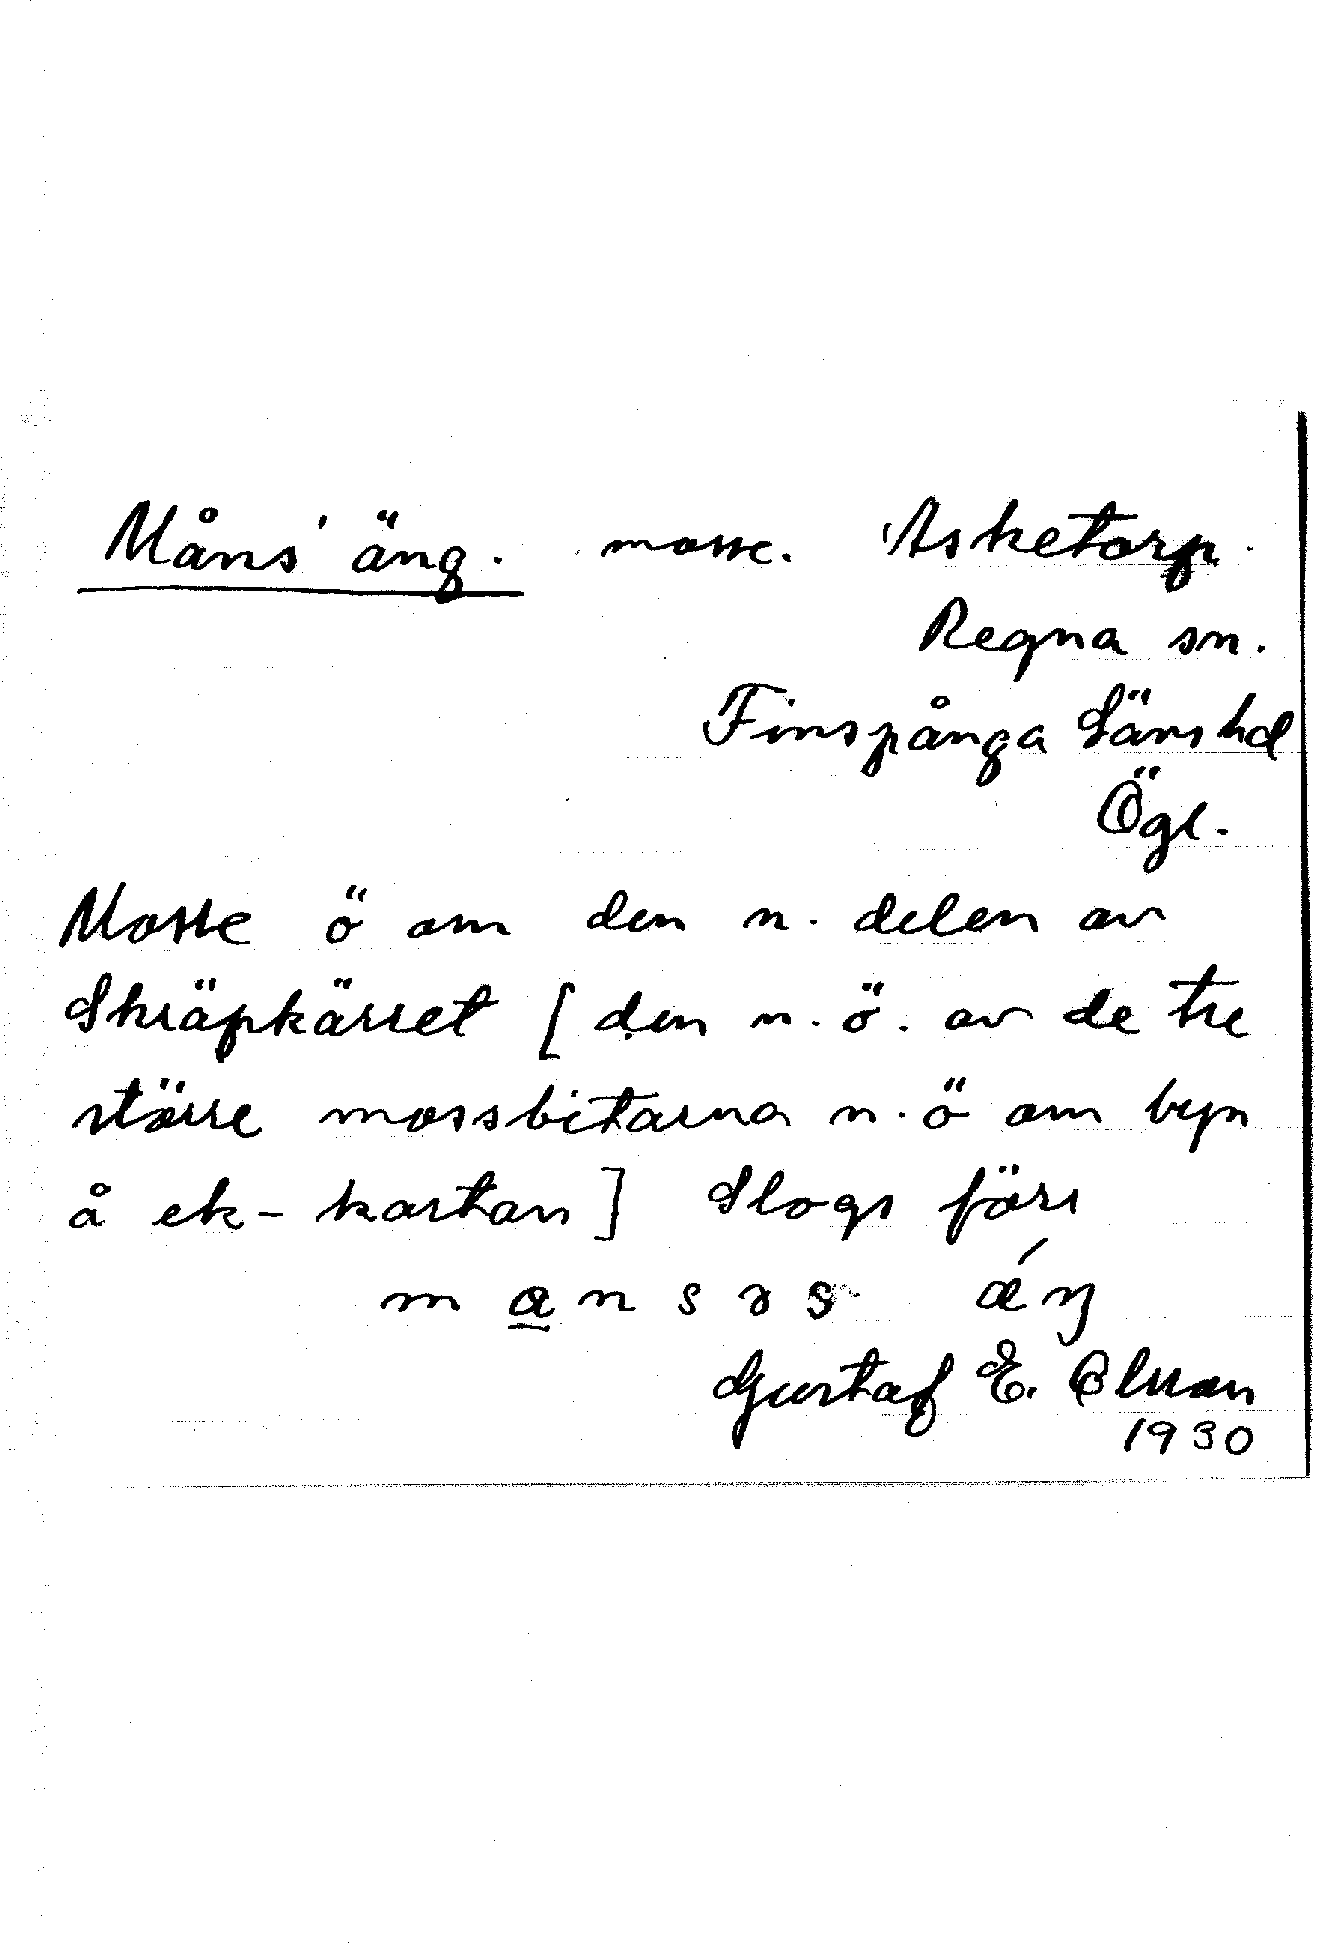 Måns' äng. mosse. Asketorp.
Regna sn.
Finspånga Länshd
Ögl.
Mosse ö om den n. delen av
Skräpkärret [den n.ö. av de tre
större mossbitarna n.ö om byn
å ek-kartan] Slogs förr
mansəs ǽŋ
Gustaf E. Olsson
1930